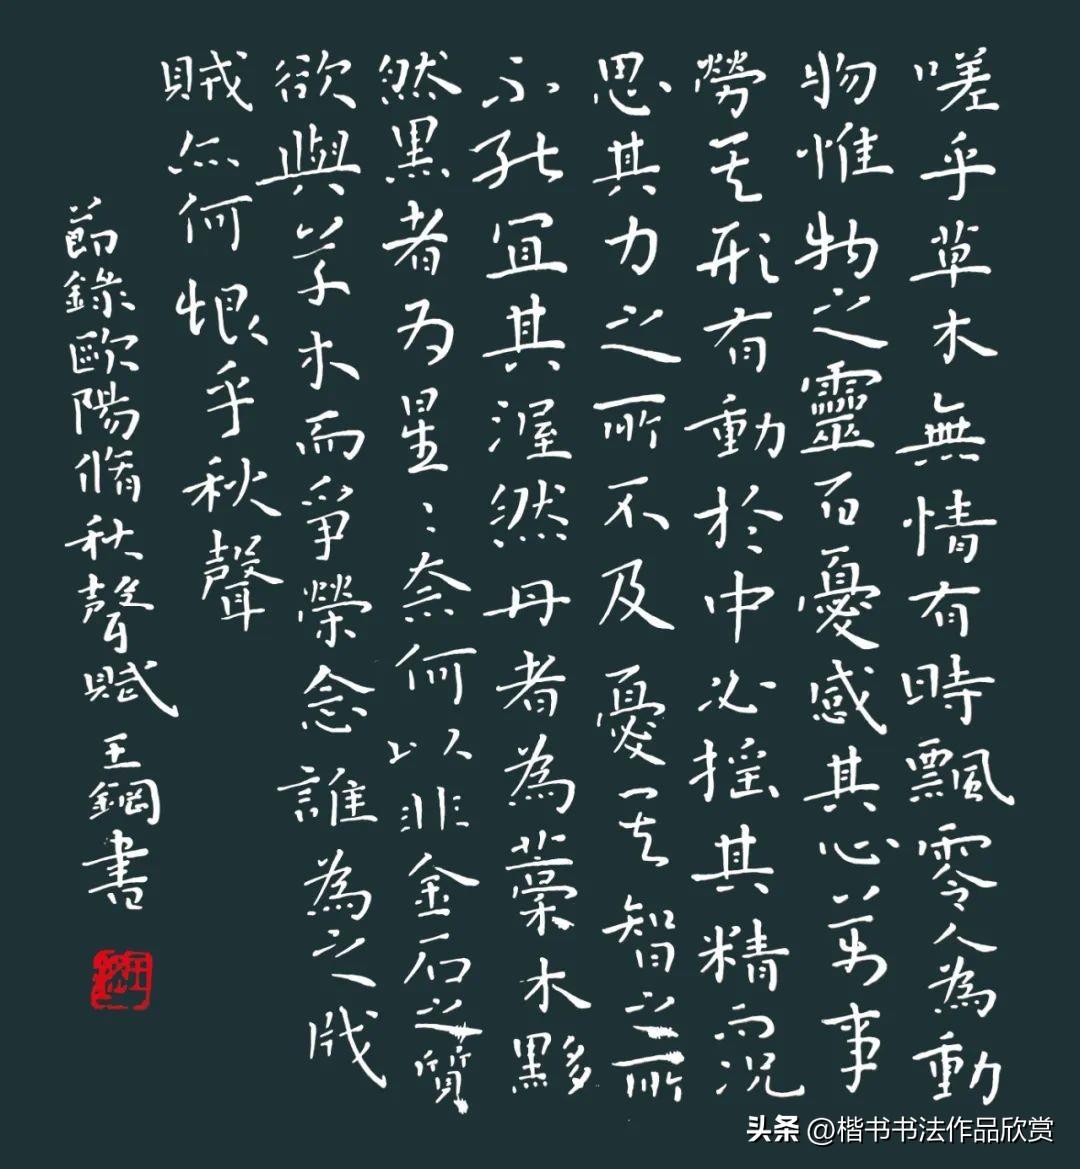 嗟乎草木無情有時飄零人為動
物惟物之靈百憂感其心萬事
勞其形有動於中必搖其精而況
思其力之所不及憂其智之所
不能宜其渥然丹者為藁木黟
然黑者为星〻奈何以非金石之質
欲與草木而爭榮念誰為之戕
賊亦何恨乎秋聲
節錄歐陽脩秋聲賦 王鋼書
头条 @楷书书法作品欣赏